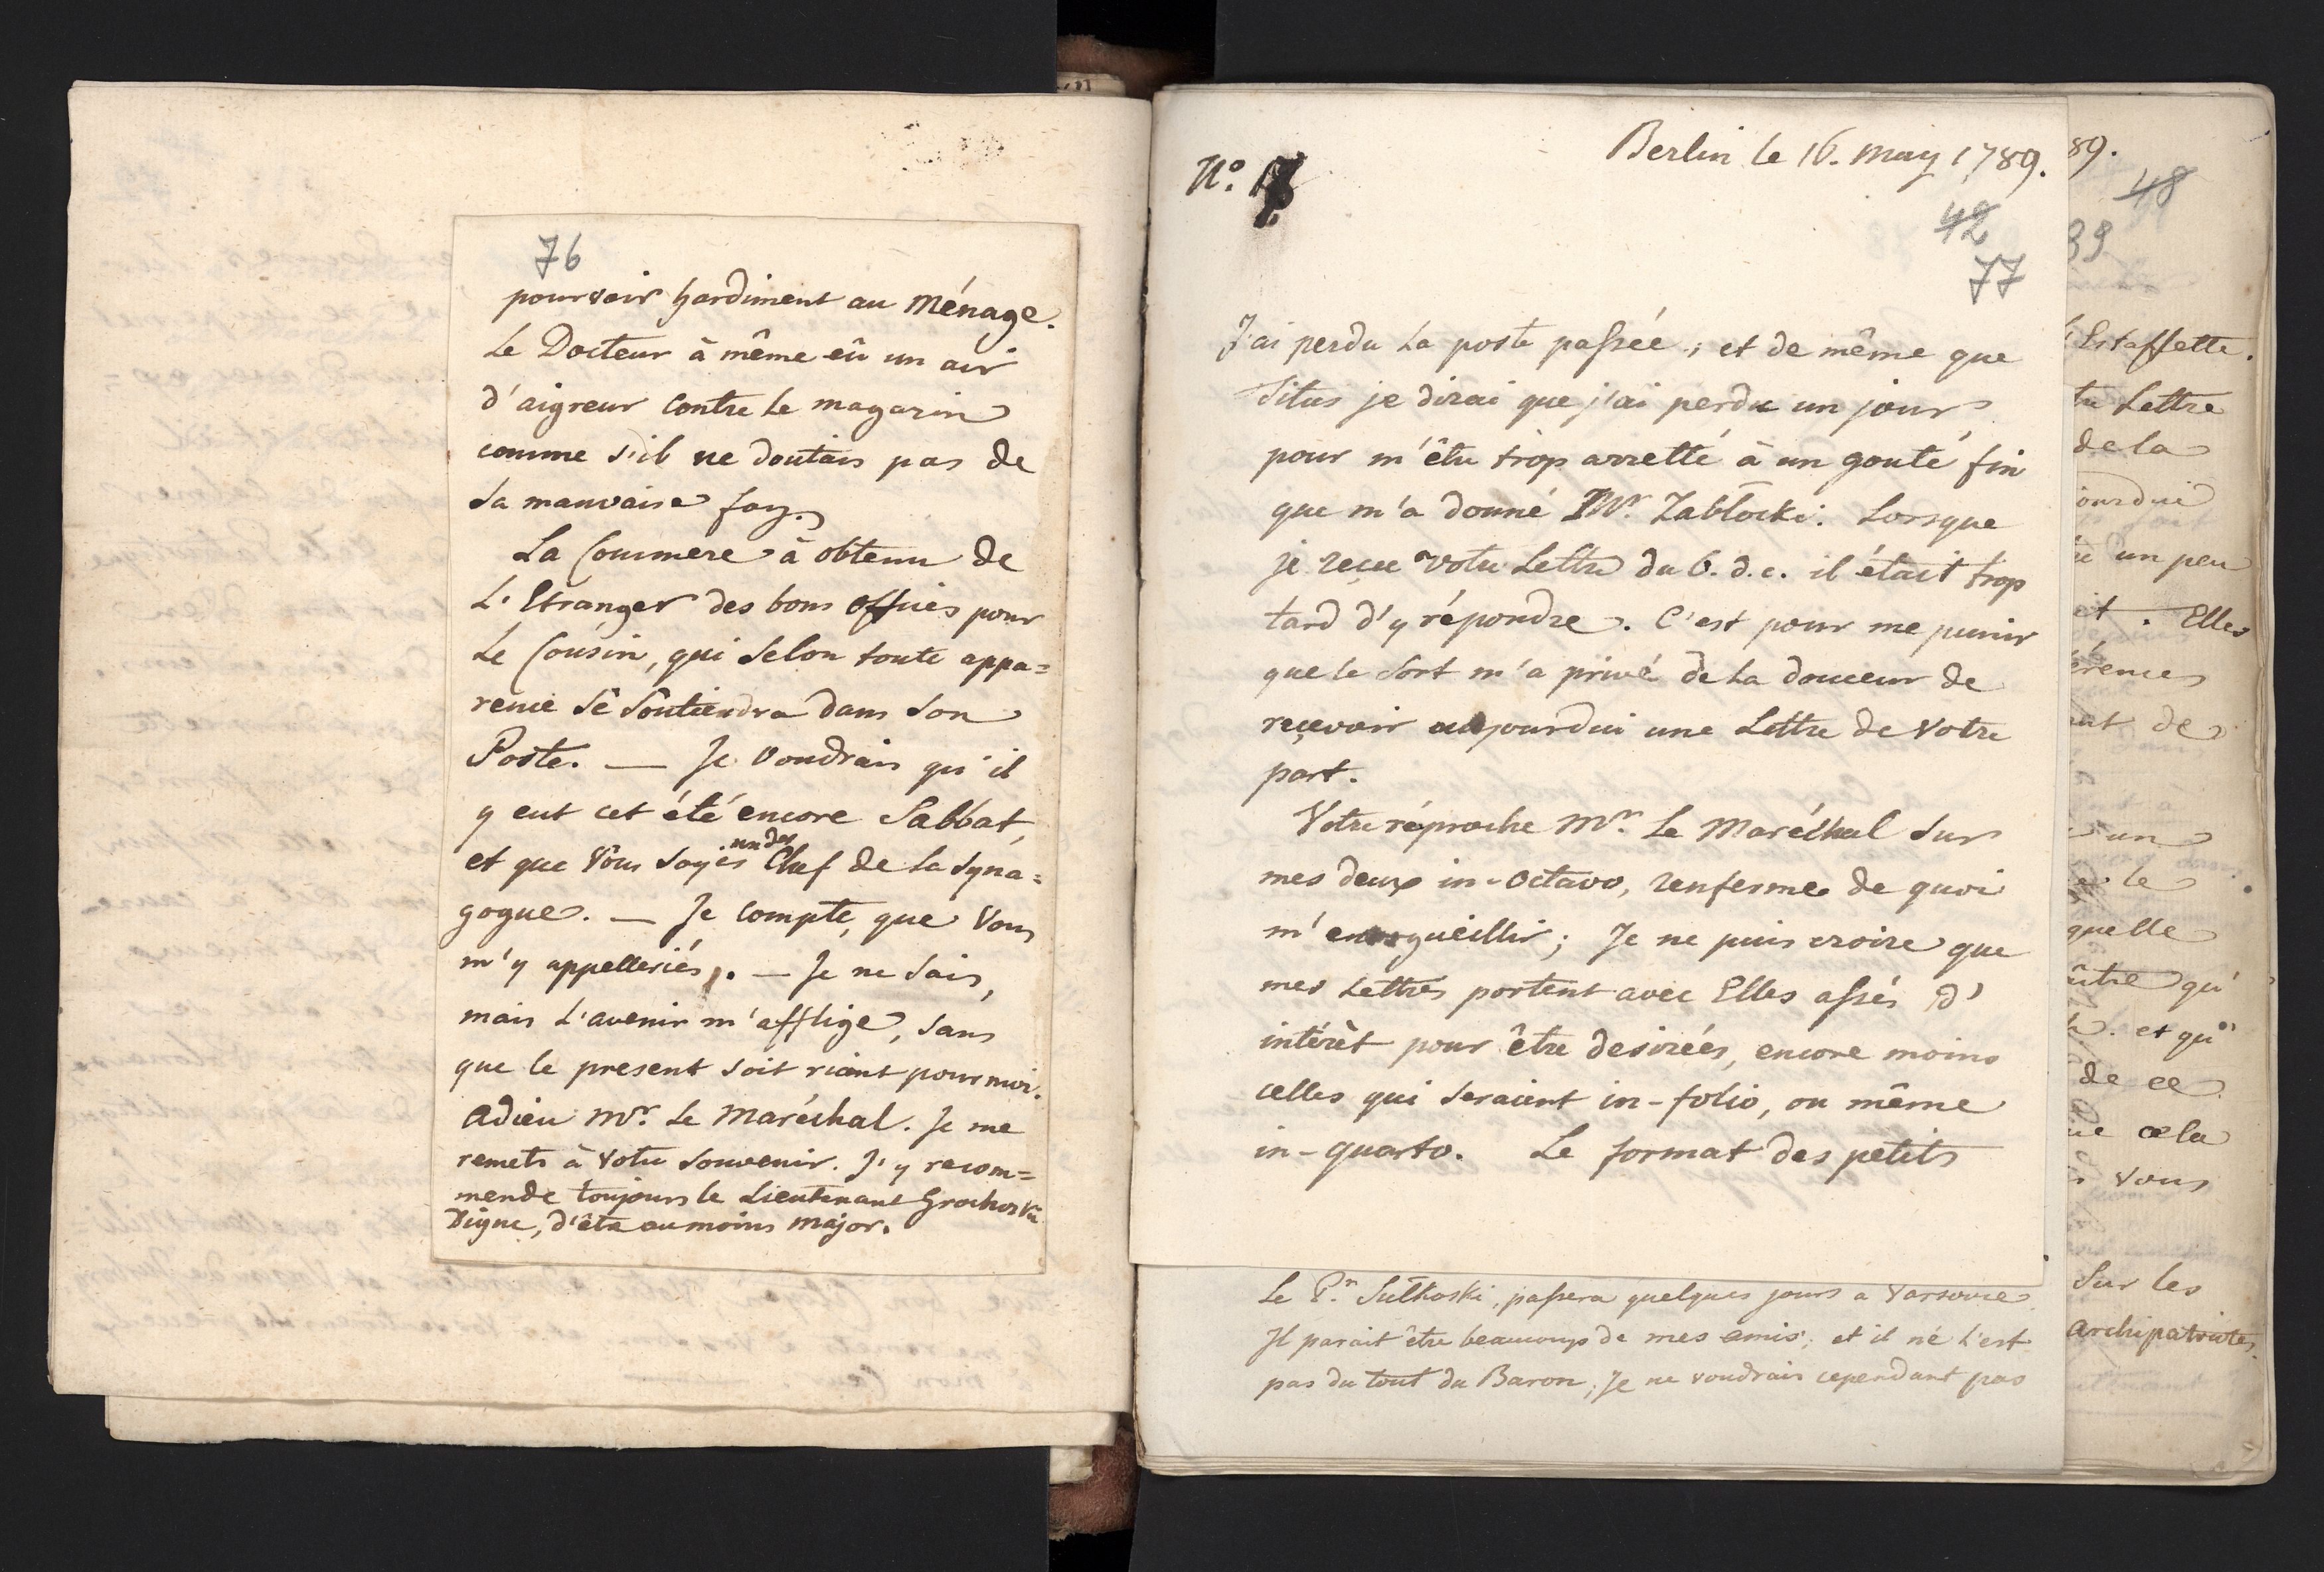 76
pourvoir hardiment au Ménage.
Le Docteur à même eû un air
d'aigreur contre le magazin
comme s'il ne doutais pas de
sa mauvaise foy.
La Coummere à obtenu de
L'Etranger des bons offices pour
Le Cousin, qui selon toute appa=
rence sè soutiendra dans son
Poste. — Je voudrais qu'il
y eut cet été encore Sabbat,
un des
et que Vous soyés Chef de la Syna=
gogue. — Je compte, que Vous
m'y appelleriés. — Je ne sais,
mais L'avenir m'afflige, sans
que le present soit riant pour moi.
Adieu Mr. Le Maréchal. Je me
remets à Votre souvenir. J'y recom=
mende toujours le Lieutenant Grochoski
Digne, d'être au moins Major.
Berlin le 16. May 1789.
No.
42
77
J'ai perdu La poste passée; et de même que
Titus je dirai que j'ai perdu un jour,
pour m'être trop arretté à un gouté fin
que m'a donné Mr. Zabłocki. Lorsque
je reçu Votre Lettre du 6. d. c. il était trop
tard d'y répondre. C'est pour me punir
que le sort m'a privé de la douceur de
reçevoir aujourdui une Lettre de Votre
part.
Votre réproche Mr. Le Maréchal sur
mes deux in-octavo, renferme de quoi
m'enorgueillir; Je ne puis croire que
mes Lettres portent avec Elles assés d'
intérèt pour être desirées, encore moins
celles qui seraient in-folio, ou même
in-quarto. Le format des petits
Le P.n Sułkoski, passera quelques jours a Varsovie.
Il parait être beaucoup de mes amis; et il ne l'est
pas du tout du Baron; Je ne voudrais cependant pas
89.
48
39
Estaffette.
Lettre
de la
ourdui
un peu
it. Elles
érences
ut de
un
le
quelle
ûtre qu'
et qu'
de ce
cela
vous
Sur les
Archipatriotes.